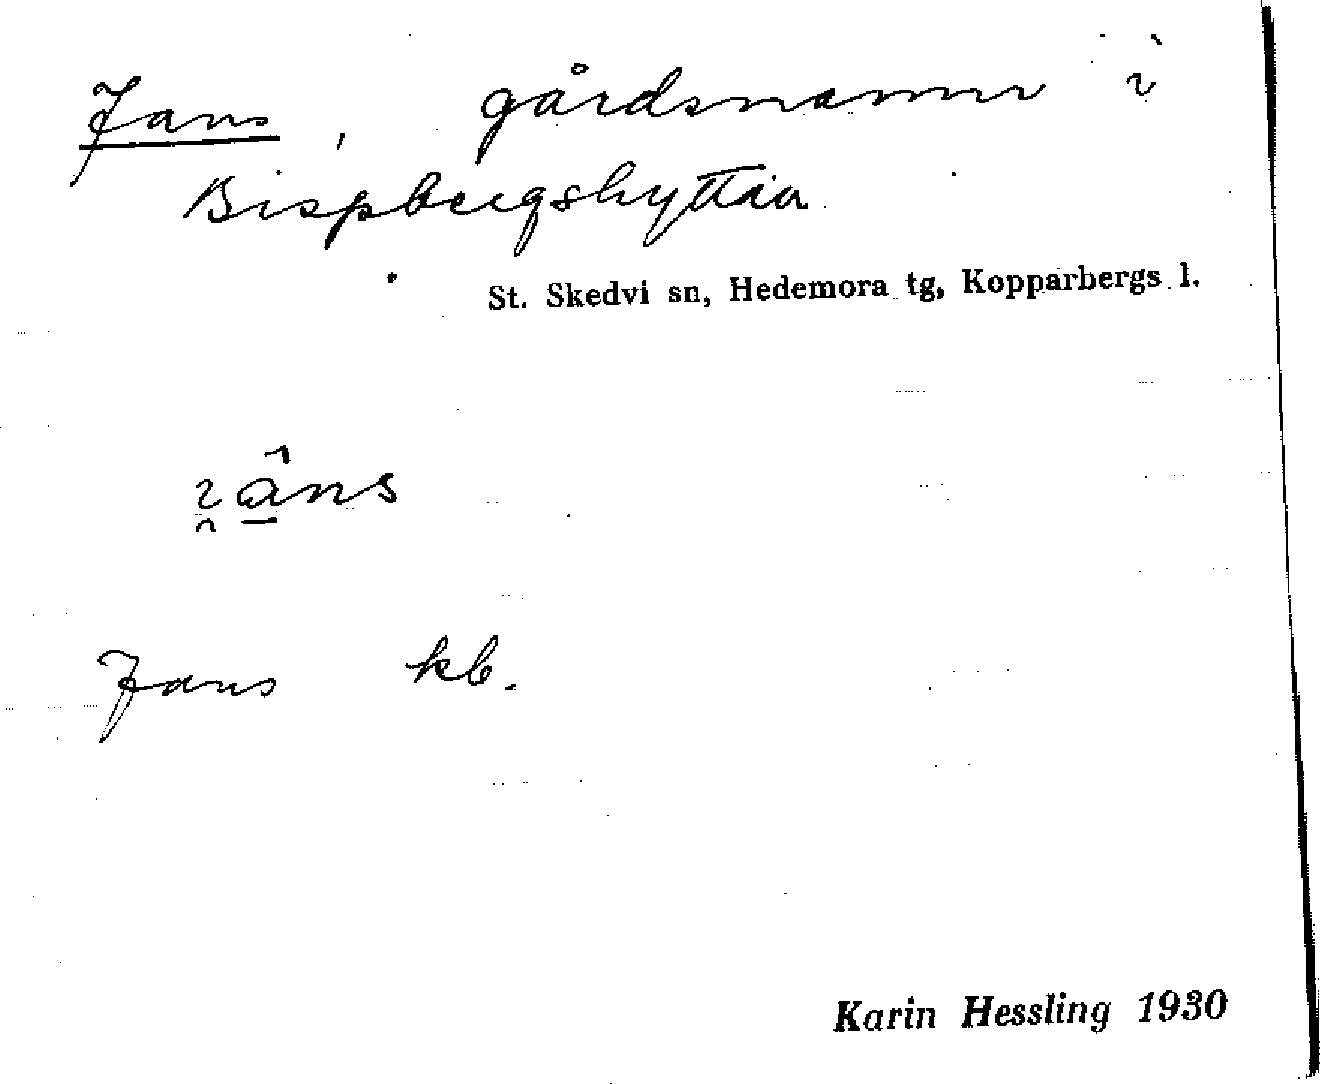 Jans, gårdsnamn i
Bispbergshyttan
St. Skedvi sn, Hedemora tg, Kopparbergs l.
Jans kb.
Karin Hessling 1930